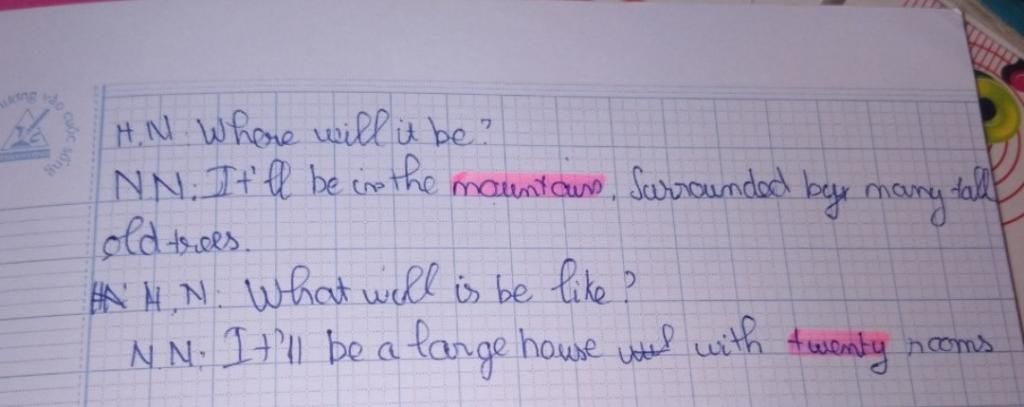 ương vào cuộc sống
H.N: Where will it be?
NN: It'll be in the mountains, Surrounded by many tall
old trees.
H.N: What will is be like?
NN: It'll be a large house with twenty rooms